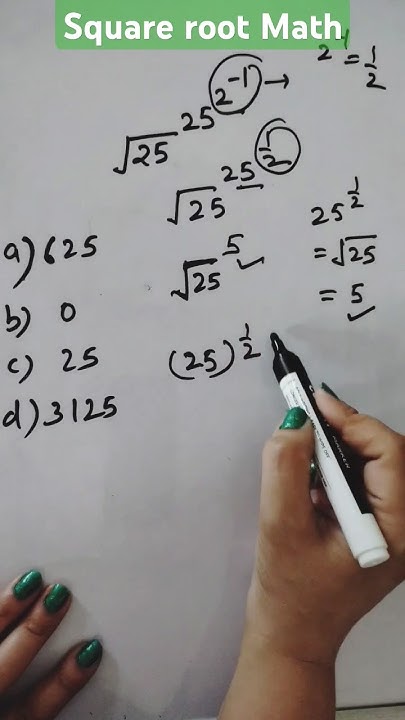 Square root Math
2⁻¹ = 1/2
√25^25^2^-1 →
√25^25^1/2
25^1/2
a) 625
√25^5 ✓
= √25
= 5 ✓
b) 0
(25)^1/2
c) 25
d) 3125